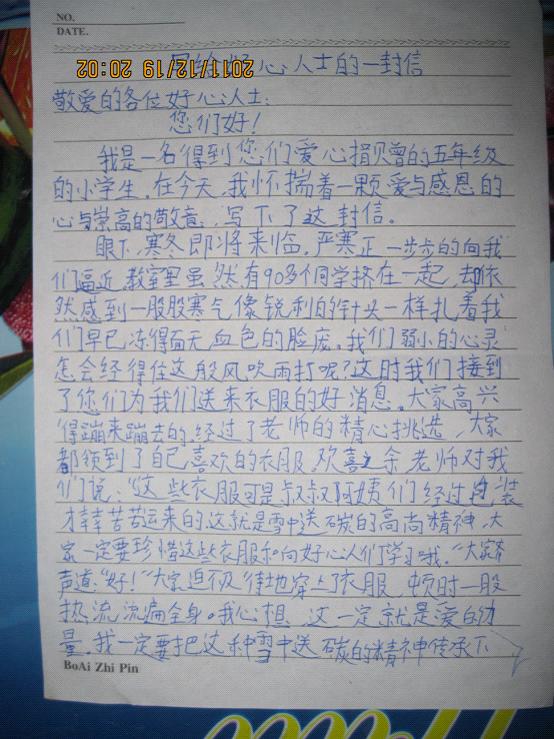 NO.
DATE.
2011/12/19 20:02
心人士的一封信
敬爱的各位好心人士：
您们好！
我是一名得到您们爱心捐赠的五年级
的小学生。在今天，我怀揣着一颗爱与感恩的
心与崇高的敬意，写下了这封信。
眼下，寒冬即将来临，严寒正一步步的向我
们逼近，教室里虽然有90多个同学挤在一起，却依
然感到一股股寒气像锐利的针头一样扎着我
们早已冻得面无血色的脸庞。我们弱小的心灵
怎会经得住这般风吹雨打呢？这时我们接到
了您们为我们送来衣服的好消息。大家高兴
得蹦来蹦去的。经过了老师的精心挑选，大家
都领到了自己喜欢的衣服。欢喜之余老师对我
们说：“这些衣服可是叔叔阿姨们经过
才辛辛苦苦运来的，这就是雪中送碳的高尚精神，大
家一定要珍惜这些衣服和向好心人们学习哦。”大家齐
声道：“好！”大家迫不及待地穿上了衣服，顿时一股
热流流遍全身。我心想，这一定就是爱的力
量。我一定要把这种雪中送碳的精神传承下
BoAi Zhi Pin